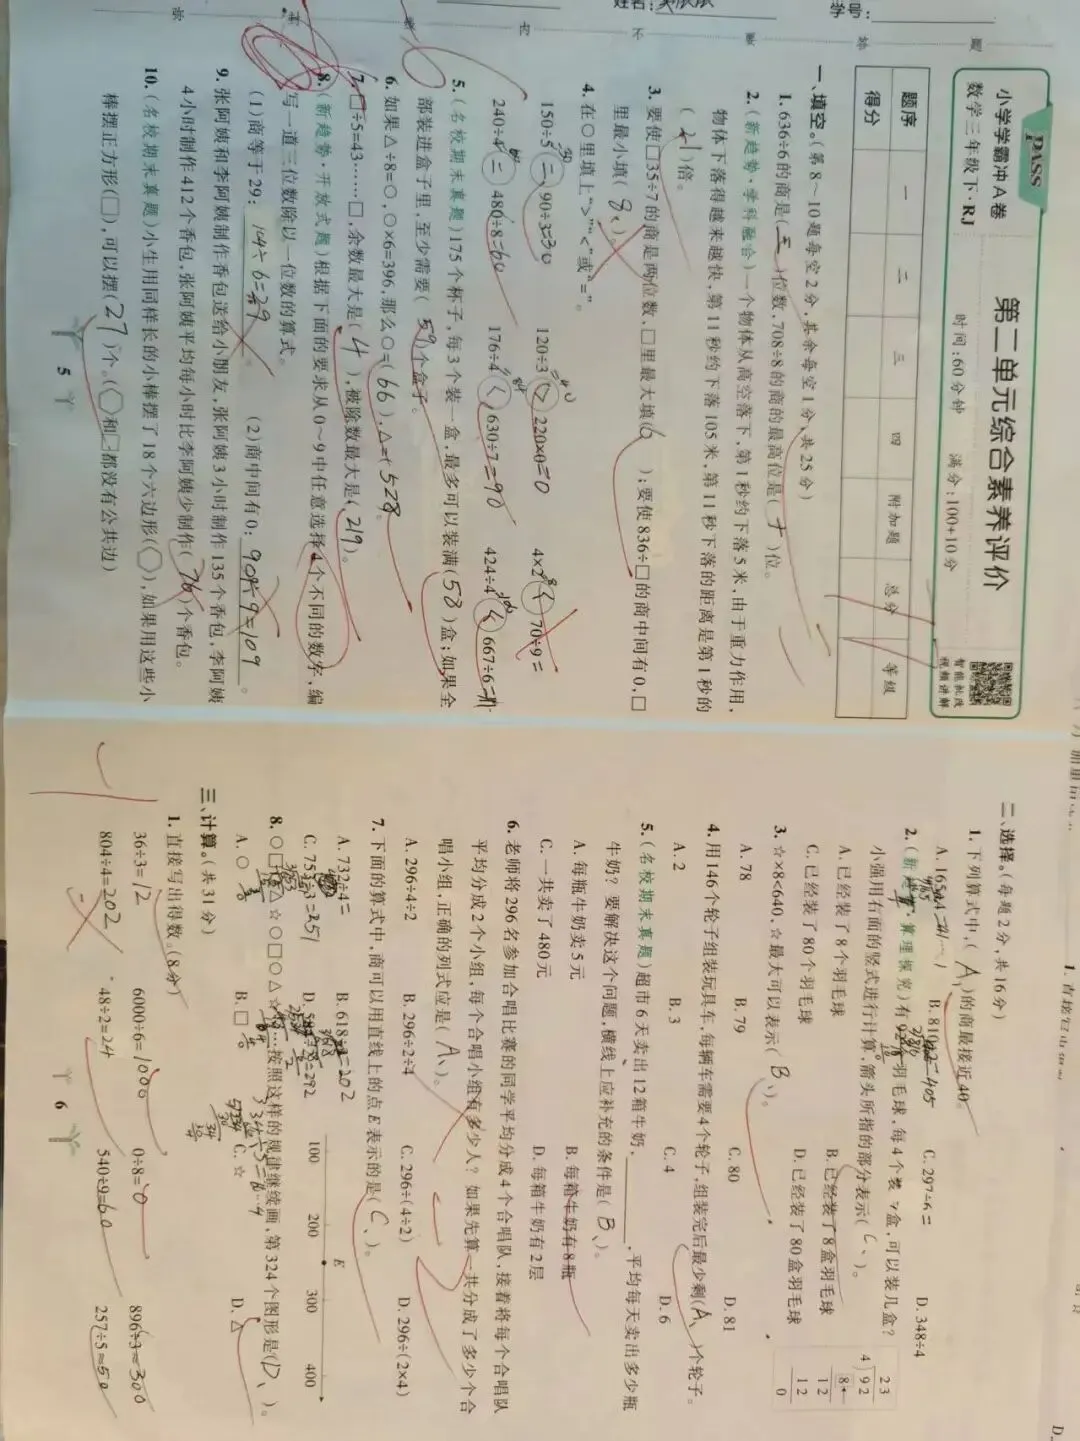 PASS
小学学霸冲A卷
数学三年级下·RJ
第二单元综合素养评价
时间:60分钟 满分:100+10分
智能批改
视频讲解
题序 一 二 三 四 附加题 总分 等级
得分
一、填空。(第8~10题每空2分,其余每空1分,共25分)
1. 636÷6的商是(三)位数,708÷8的商的最高位是(十)位。
2. (新趋势·学科融合)一个物体从高空落下,第1秒约下落5米,由于重力作用,
物体下落得越来越快,第11秒约下落105米,第11秒下落的距离是第1秒的
(21)倍。
3. 要使□35÷7的商是两位数,□里最大填(6);要使836÷□的商中间有0,□
里最小填(8)。
4. 在○里填上“>”“<”或“=”。
150÷5(=)90÷3=30 120÷3(>)220×0=0 4×2(<)70÷9=
240÷4(=)480÷8=60 176÷4(<)630÷7=90 424÷4(<)667÷6=111
5. (名校期末真题)175个杯子,每3个装一盒,最多可以装满(58)盒;如果全
部装进盒子里,至少需要(59)个盒子。
6. 如果△÷8=○,○×6=396,那么○=(66),△=(528)。
7. □÷5=43……□,余数最大是(4),被除数最大是(219)。
8. (新趋势·开放式题)根据下面的要求从0~9中任意选择4个不同的数字,编
写一道三位数除以一位数的算式。
(1)商等于29: 174÷6=29 (2)商中间有0: 904÷9=109。
9. 张阿姨和李阿姨制作香包送给小朋友,张阿姨3小时制作135个香包,李阿姨
4小时制作412个香包,张阿姨平均每小时比李阿姨少制作(76)个香包。
10. (名校期末真题)小生用同样长的小棒摆了18个六边形(⬡),如果用这些小
棒摆正方形(□),可以摆(27)个。(⬡和□都没有公共边)
5
二、选择。(每题2分,共16分)
1. 下列算式中,(A)的商最接近40。
A. 165÷4=41 B. 810÷2=405 C. 297÷6= D. 348÷4
2. (新趋势·算理探究)有92个羽毛球,每4个装一盒,可以装几盒?
小强用右面的竖式进行计算,箭头所指的部分表示(C、)。
A. 已经装了8个羽毛球 B. 已经装了8盒羽毛球
C. 已经装了80个羽毛球 D. 已经装了80盒羽毛球
23
4)92
8
12
12
0
3. ☆×8<640,☆最大可以表示(B、)。
A. 78 B. 79 C. 80 D. 81
4. 用146个轮子组装玩具车,每辆车需要4个轮子,组装完后最少剩(A、)个轮子。
A. 2 B. 3 C. 4 D. 6
5. (名校期末真题)超市6天卖出12箱牛奶,________,平均每天卖出多少瓶
牛奶?要解决这个问题,横线上应补充的条件是(B、)。
A. 每瓶牛奶卖5元 B. 每箱牛奶有8瓶
C. 一共卖了480元 D. 每箱牛奶有2层
6. 老师将296名参加合唱比赛的同学平均分成4个合唱队,接着将每个合唱队
平均分成2个小组,每个合唱小组有多少人?如果先算一共分成了多少个合
唱小组,正确的列式应是(A、)。
A. 296÷4÷2 B. 296÷2÷4 C. 296÷(4÷2) D. 296÷(2×4)
7. 下面的算式中,商可以用直线上的点E表示的是(C、)。
A. 732÷4= B. 618÷3=202
C. 753÷3=251 D. 584÷2=292
E
100 200 300 400
8. ○□△☆○□○△☆……按照这样的规律继续画,第324个图形是(D、)。
A. ○ B. □ C. ☆ D. △
三、计算。(共31分)
1. 直接写出得数。(8分)
36÷3=12 6000÷6=1000 0÷8=0 896÷3≈300
804÷4=202 48÷2=24 540÷9=60 257÷5≈50
6